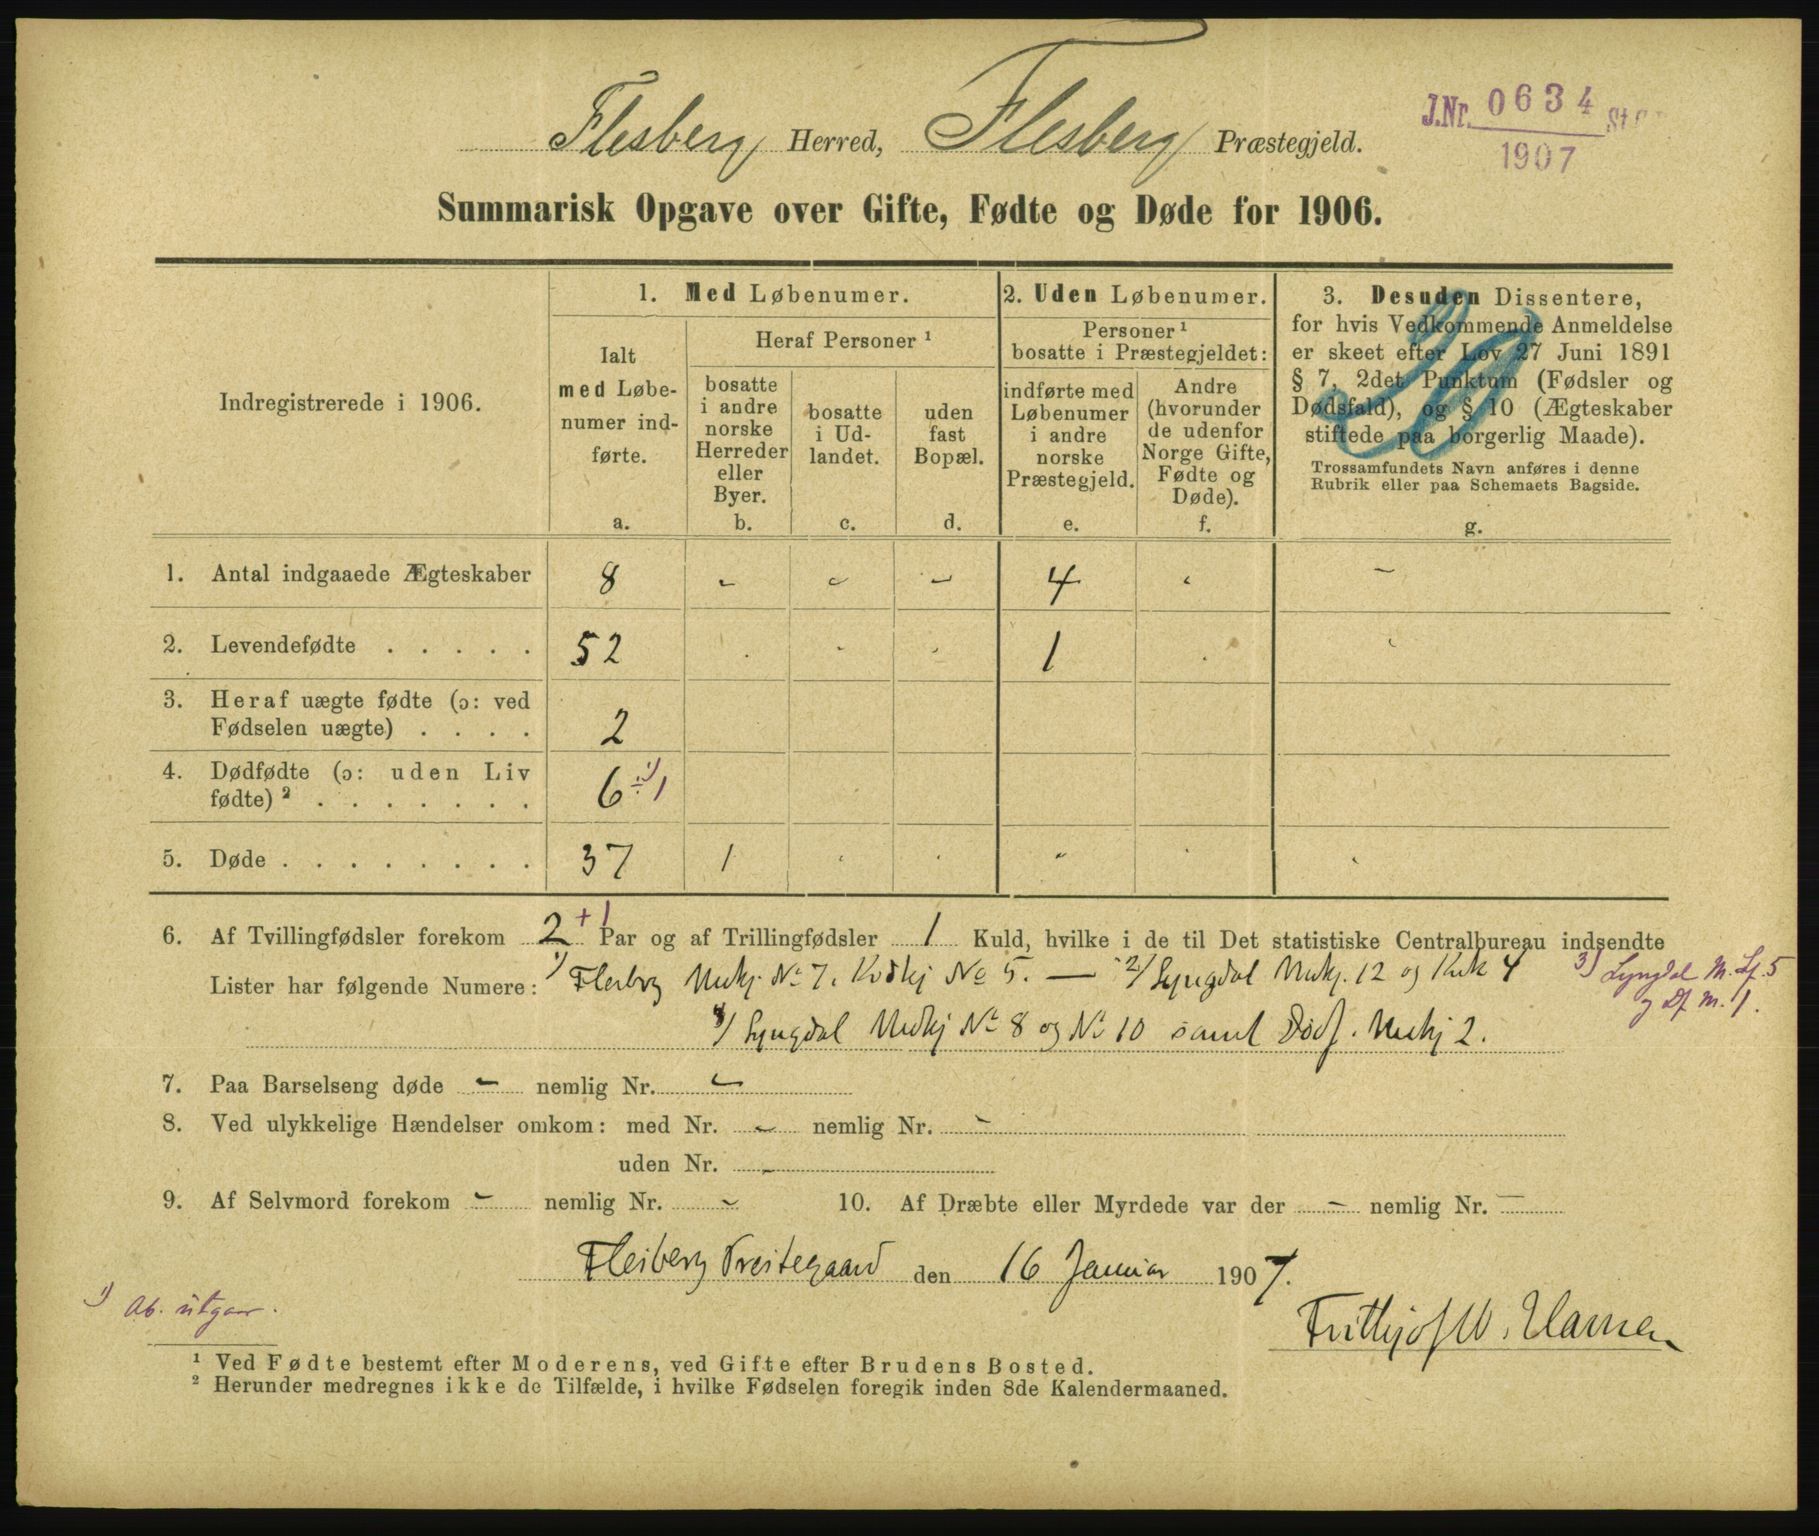 Flesberg Herred, Flesberg Præstegjeld.
J.Nr. 0634 St.
1907
Summarisk Opgave over Gifte, Fødte og Døde for 1906.
Indregistrerede i 1906.
1. Med Løbenumer.
Ialt med Løbenumer indførte.
a.
Heraf Personer ¹
bosatte i andre norske Herreder eller Byer.
b.
bosatte i Udlandet.
c.
uden fast Bopæl.
d.
2. Uden Løbenumer.
Personer ¹ bosatte i Præstegjeldet:
indførte med Løbenumer i andre norske Præstegjeld.
e.
Andre (hvorunder de udenfor Norge Gifte, Fødte og Døde).
f.
3. Desuden Dissentere,
for hvis Vedkommende Anmeldelse
er skeet efter Lov 27 Juni 1891
§ 7, 2det Punktum (Fødsler og
Dødsfald), og § 10 (Ægteskaber
stiftede paa borgerlig Maade).
Trossamfundets Navn anføres i denne
Rubrik eller paa Schemaets Bagside.
g.
20
1. Antal indgaaede Ægteskaber 8 - - - 4 - -
2. Levendefødte . . . . . 52 1
3. Heraf uægte fødte (ɔ: ved
Fødselen uægte) . . . . 2
4. Dødfødte (ɔ: uden Liv
fødte) ² . . . . . . . 6 ÷ 1 ¹)
5. Døde . . . . . . . . 37 1
6. Af Tvillingfødsler forekom 2 + 1 Par og af Trillingfødsler 1 Kuld, hvilke i de til Det statistiske Centralbureau indsendte
Lister har følgende Numere: ¹) Flesberg Mndkj. No 7, Kvdkj No 5. — ²) Lyngdal Mndkj. 12 og Kvk 4
³) Lyngdal M. Lf. 5
og Df. M. 1.
³) Lyngdal Mndkj No 8 og No 10 samt Dødf. Mndkj 2.
7. Paa Barselseng døde - nemlig Nr. -
8. Ved ulykkelige Hændelser omkom: med Nr. - nemlig Nr. -
uden Nr. -
9. Af Selvmord forekom - nemlig Nr. - 10. Af Dræbte eller Myrdede var der - nemlig Nr. -
Flesberg Prestegaard den 16 Januar 1907.
Frithjof W. Hansen
¹) Ab. utgaar.
¹ Ved Fødte bestemt efter Moderens, ved Gifte efter Brudens Bosted.
² Herunder medregnes ikke de Tilfælde, i hvilke Fødselen foregik inden 8de Kalendermaaned.